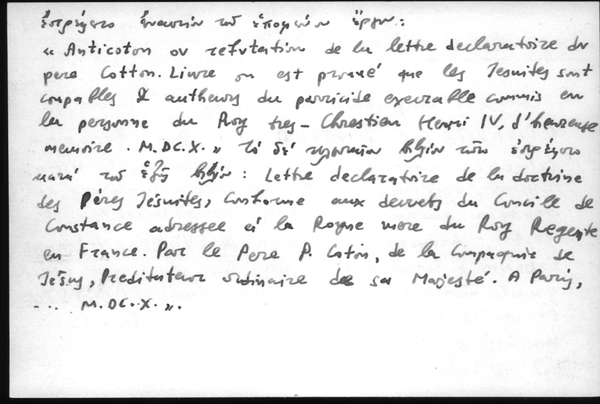 ἐστρέφετο ἐναντίον τοῦ ἑπομένου ἔργου:
« Anticoton ou refutation de la lettre declaratoire du
pere Cotton. Livre ou est prouvé que les Jesuites sont
coupables & autheurs du parricide execrable commis en
la personne du Roy tres-Chrestien Henri IV, d'heureuse
memoire. M.DC.X. » τὸ δὲ βιβλίον τοῦτο ἐστρέφετο
κατὰ τοῦ ἑξῆς βιβλίου: Lettre declaratoire de la doctrine
des Pères Jesuites, Conforme aux decrets du Concille de
Constance adressee à la Royne mere du Roy Regente
en France. Par le Pere P. Coton, de la Compagnie de
Jésus, Predicateur ordinaire de sa Majesté. A Paris,
... M.DC.X. ».